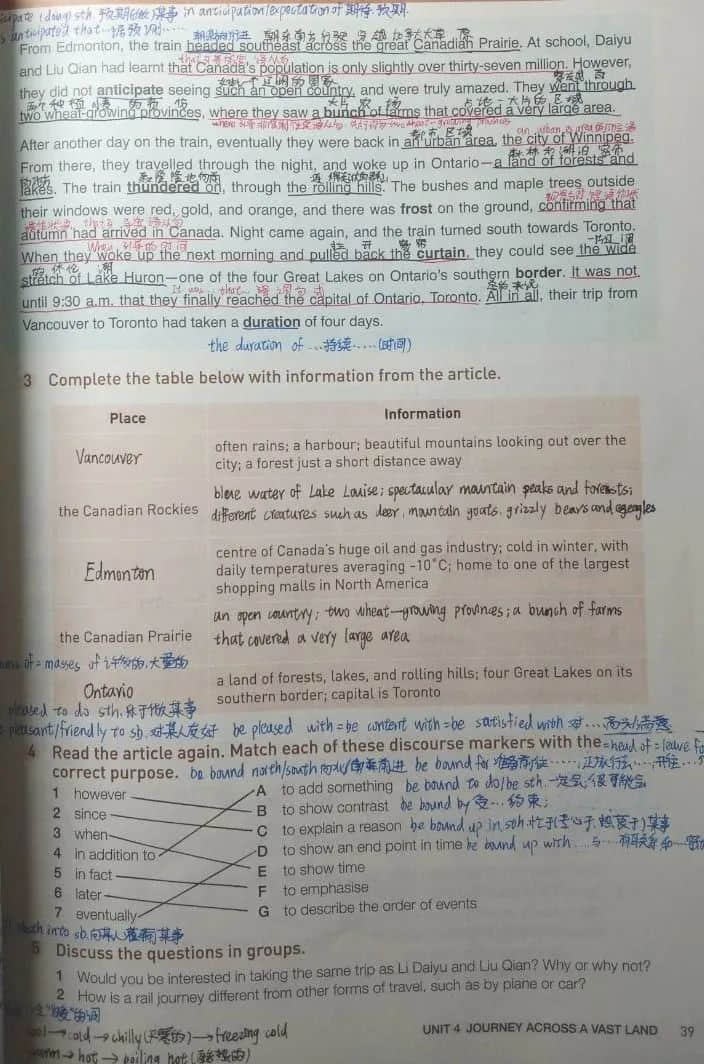 cipate (doing) sth. 预期(做)某事 in anticipation/expectation of 期待,预期
s anticipated that…据预测…
朝东南方行驶 穿越加拿大草原
From Edmonton, the train headed southeast across the great Canadian Prairie. At school, Daiyu
and Liu Qian had learnt that Canada's population is only slightly over thirty-seven million. However,
如此一个辽阔的国家
they did not anticipate seeing such an open country, and were truly amazed. They went through
大片农场 占地一大片的区域
two wheat-growing provinces, where they saw a bunch of farms that covered a very large area.
After another day on the train, eventually they were back in an urban area, the city of Winnipeg.
From there, they travelled through the night, and woke up in Ontario—a land of forests and
lakes. The train thundered on, through the rolling hills. The bushes and maple trees outside
their windows were red, gold, and orange, and there was frost on the ground, confirming that
autumn had arrived in Canada. Night came again, and the train turned south towards Toronto.
When they woke up the next morning and pulled back the curtain, they could see the wide
stretch of Lake Huron—one of the four Great Lakes on Ontario's southern border. It was not
It was … that … 强调句式
until 9:30 a.m. that they finally reached the capital of Ontario, Toronto. All in all, their trip from
Vancouver to Toronto had taken a duration of four days.
the duration of …持续……(时间)
3 Complete the table below with information from the article.
Place Information
Vancouver often rains; a harbour; beautiful mountains looking out over the
city; a forest just a short distance away
the Canadian Rockies blue water of Lake Louise; spectacular mountain peaks and forests;
different creatures such as deer, mountain goats, grizzly bears and eagles
Edmonton centre of Canada's huge oil and gas industry; cold in winter, with
daily temperatures averaging -10°C; home to one of the largest
shopping malls in North America
the Canadian Prairie an open country; two wheat-growing provinces; a bunch of farms
that covered a very large area
of = masses of 许多的,大量的
Ontario a land of forests, lakes, and rolling hills; four Great Lakes on its
southern border; capital is Toronto
pleased to do sth. 乐于做某事
pleasant/friendly to sb. 对某人友好 be pleased with = be content with = be satisfied with 对…
4 Read the article again. Match each of these discourse markers with the
correct purpose.
= head of = leave fo
be bound north/south be bound for 准备前往……
1 however A to add something be bound to do/be sth. 一定会,很可能会
2 since B to show contrast be bound by 受…约束;
3 when C to explain a reason be bound up in sth.
4 in addition to D to show an end point in time be bound up with …
5 in fact E to show time
6 later F to emphasise
7 eventually G to describe the order of events
into sb. 向某人灌输某事
5 Discuss the questions in groups.
1 Would you be interested in taking the same trip as Li Daiyu and Liu Qian? Why or why not?
2 How is a rail journey different from other forms of travel, such as by plane or car?
→ cold → chilly(寒冷的) → freezing cold
→ hot → boiling hot
UNIT 4 JOURNEY ACROSS A VAST LAND 39